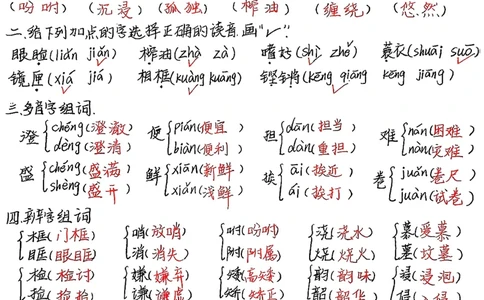 (吩咐) (沉浸) (孤独) (榨油) (缠绕) (悠然)
二.给下列加点的字选择正确的读音.画"✓".
眼睑(liǎn jiǎn) 榨油(zhà zà) 嗜好(shì zhě) 蓑衣(shuāi suō)
镜匣(xiá jiá) 相框(kuàng kuāng) 铿锵(kēng qiāng kēng jiāng)
三.多音字组词.
澄{chéng(澄澈) 便{pián(便宜) 担{dān(担当) 难{nán(困难)
dèng(澄清) biàn(便利) dàn(重担) nàn(灾难)
盛{chéng(盛满) 鲜{xiān(新鲜) 挨{āi(挨近) 卷{juǎn(卷尺)
shèng(盛开) xiǎn(浅鲜) ái(挨打) juàn(试卷)
四.辨字组词
{框(门框) {哨(放哨) {吩(吩咐) {浇(浇水) {慕(爱慕)
眶(眼眶) 消(消失) 附(附属) 烧(烧火) 墓(坟墓)
{检(检讨) {嫌(嫌弃) {矮(高矮) {韵(韵味) {浸(浸泡)